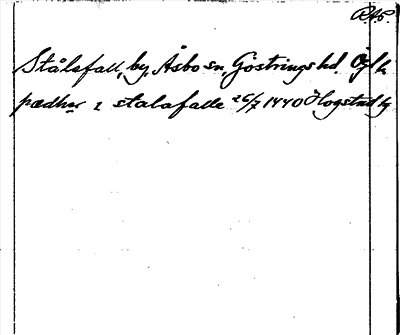 RAp.
Stålsfall, by, Åsbo sn, Göstrings hd. Ög l k
pædher i stalafalle 26/7 1440 Högstad bg